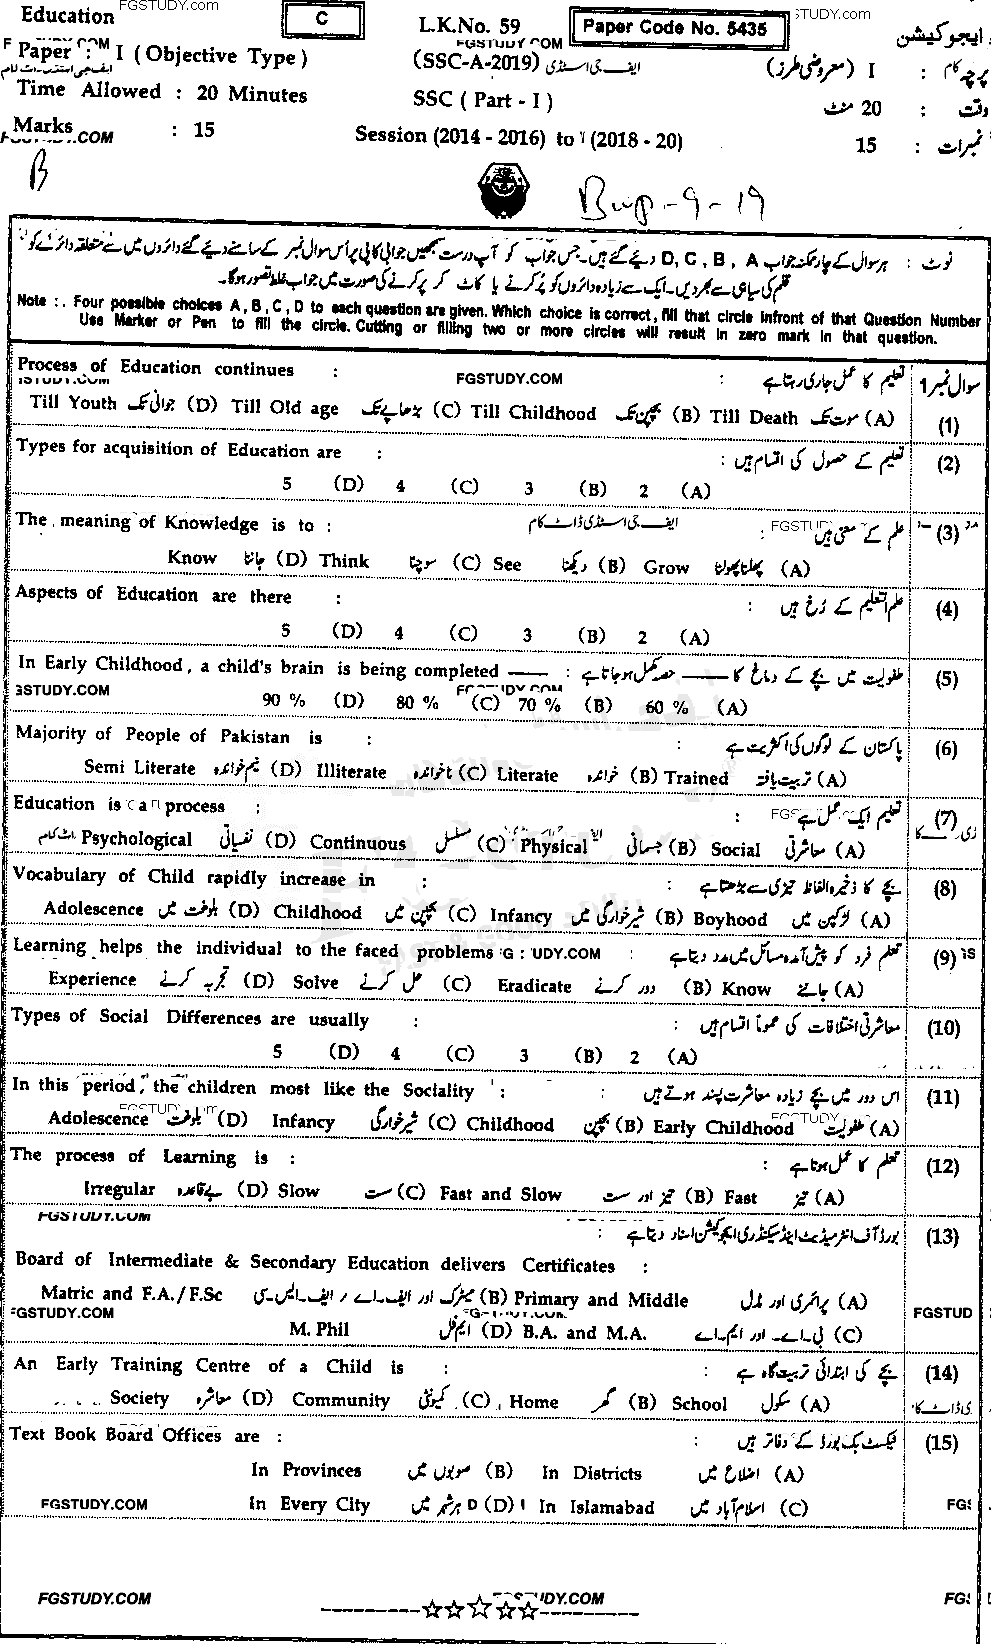 Education FGSTUDY.com C L.K.No. 59 Paper Code No. 5435 STUDY.COM ایجوکیشن
Paper : I ( Objective Type ) FGSTUDY COM (SSC-A-2019) ایف جی اسٹڈی پرچہ : I (معروضی طرز)
Time Allowed : 20 Minutes SSC ( Part - I ) وقت : 20 منٹ
Marks : 15 Session (2014 - 2016) to (2018 - 20) نمبرات : 15
B
Bwp-9-19
نوٹ : ہر سوال کے چار ممکنہ جواب D, C, B, A دیئے گئے ہیں۔ جس جواب کو آپ درست سمجھیں جوابی کاپی پر اُس سوال نمبر کے سامنے دیئے گئے دائروں میں سے متعلقہ دائرے کو
قلم کی سیاہی سے بھر دیں۔ ایک سے زیادہ دائروں کو پُر کرنے یا کاٹ کر پُر کرنے کی صورت میں جواب غلط تصور ہوگا۔
Note :. Four possible choices A, B, C, D to each question are given. Which choice is correct, fill that circle infront of that Question Number
Use Marker or Pen to fill the circle. Cutting or filling two or more circles will result in zero mark in that question.
Process of Education continues : FGSTUDY.COM تعلیم کا عمل جاری رہتا ہے : سوال نمبر 1
Till Youth جوانی تک (D) Till Old age بڑھاپے تک (C) Till Childhood بچپن تک (B) Till Death موت تک (A) (1)
Types for acquisition of Education are : تعلیم کے حصول کی اقسام ہیں : (2)
5 (D) 4 (C) 3 (B) 2 (A)
The meaning of Knowledge is to : ایف جی اسٹڈی ڈاٹ کام علم کے معنی ہیں : (3)
Know جاننا (D) Think سوچنا (C) See دیکھنا (B) Grow پھلنا پھولنا (A)
Aspects of Education are there : علم التعلیم کے رُخ ہیں : (4)
5 (D) 4 (C) 3 (B) 2 (A)
In Early Childhood, a child's brain is being completed —— : طفولیت میں بچے کے دماغ کا —— حصہ مکمل ہو جاتا ہے : (5)
90 % (D) 80 % (C) 70 % (B) 60 % (A)
Majority of People of Pakistan is : پاکستان کے لوگوں کی اکثریت ہے : (6)
Semi Literate نیم خواندہ (D) Illiterate ناخواندہ (C) Literate خواندہ (B) Trained تربیت یافتہ (A)
Education is a process : تعلیم ایک عمل ہے : (7)
Psychological نفسیاتی (D) Continuous مسلسل (C) Physical جسمانی (B) Social معاشرتی (A)
Vocabulary of Child rapidly increase in : بچے کا ذخیرہ الفاظ تیزی سے بڑھتا ہے : (8)
Adolescence بلوغت میں (D) Childhood بچپن میں (C) Infancy شیر خوارگی میں (B) Boyhood لڑکپن میں (A)
Learning helps the individual to the faced problems : تعلم فرد کو پیش آمدہ مسائل میں مدد دیتا ہے : (9)
Experience تجربہ کرنے (D) Solve حل کرنے (C) Eradicate دور کرنے (B) Know جاننے (A)
Types of Social Differences are usually : معاشرتی اختلافات کی عموماً اقسام ہیں : (10)
5 (D) 4 (C) 3 (B) 2 (A)
In this period, the children most like the Sociality : اس دور میں بچے زیادہ معاشرت پسند ہوتے ہیں : (11)
Adolescence بلوغت (D) Infancy شیر خوارگی (C) Childhood بچپن (B) Early Childhood طفولیت (A)
The process of Learning is : تعلم کا عمل ہوتا ہے : (12)
Irregular بے قاعدہ (D) Slow سست (C) Fast and Slow تیز اور سست (B) Fast تیز (A)
FGSTUDY.COM بورڈ آف انٹرمیڈیٹ اینڈ سیکنڈری ایجوکیشن اسناد دیتا ہے : (13)
Board of Intermediate & Secondary Education delivers Certificates :
Matric and F.A./F.Sc میٹرک اور ایف۔اے / ایف۔ایس۔سی (B) Primary and Middle پرائمری اور مڈل (A)
FGSTUDY.COM M. Phil ایم فل (D) B.A. and M.A. بی۔اے۔ اور ایم۔اے (C) FGSTUD
An Early Training Centre of a Child is : بچے کی ابتدائی تربیت گاہ ہے : (14)
Society معاشرہ (D) Community کمیونٹی (C) Home گھر (B) School سکول (A)
Text Book Board Offices are : ٹیکسٹ بک بورڈ کے دفاتر ہیں : (15)
In Provinces صوبوں میں (B) In Districts اضلاع میں (A)
FGSTUDY.COM In Every City ہر شہر میں (D) In Islamabad اسلام آباد میں (C) FGS
FGSTUDY.COM ---------☆☆☆☆☆--------- FGS